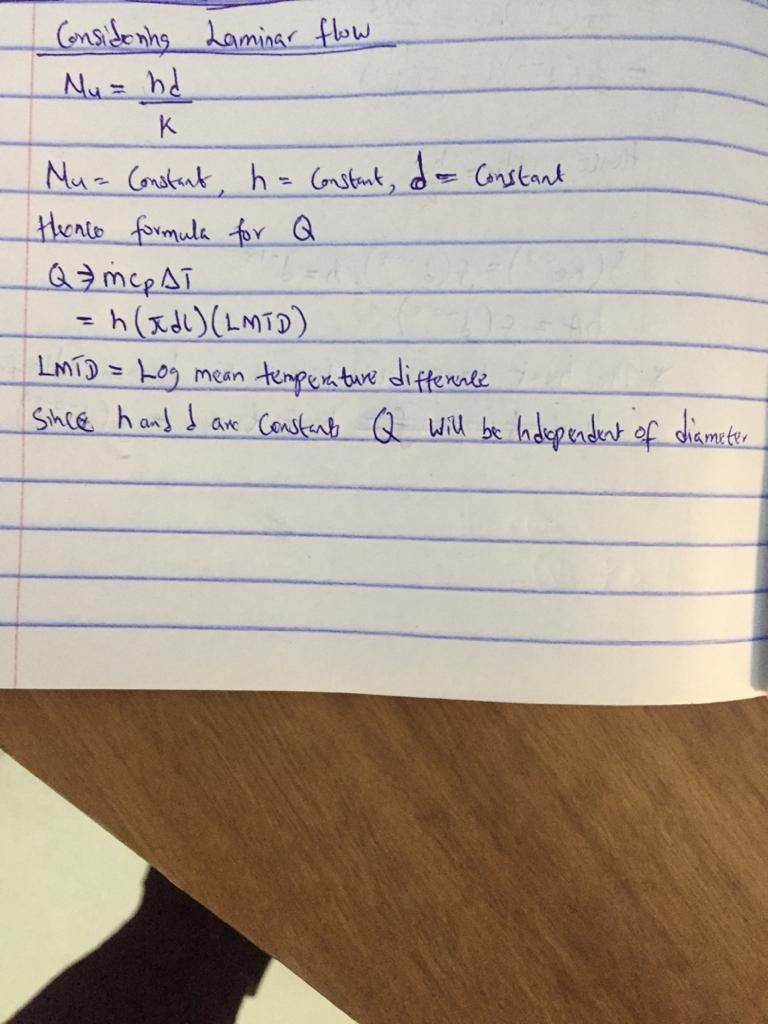 Considering Laminar flow
Nu = hd
K
Nu = Constant, h = Constant, d = Constant
Hence formula for Q
Q ⇒ ṁcpΔT
= h(πdl)(LMTD)
LMTD = Log mean temperature difference
Since h and d are Constants Q will be independent of diameter